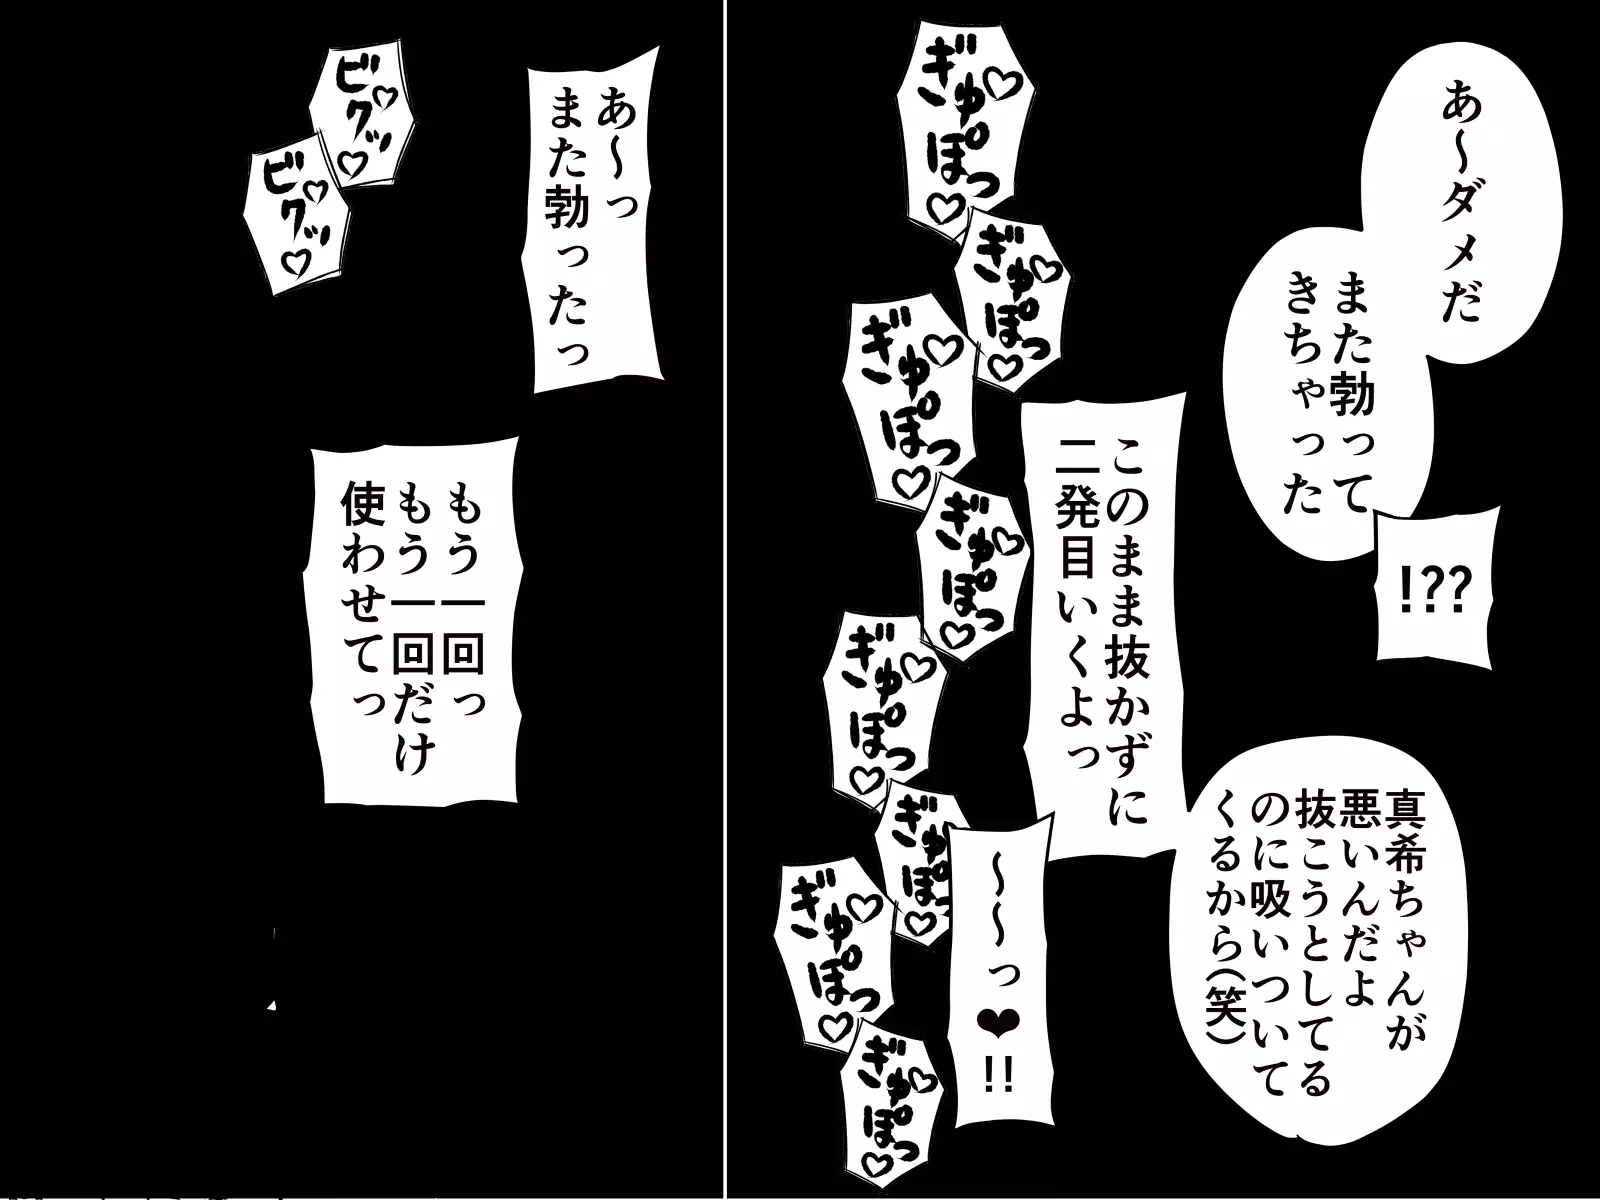 あ〜ダメだ
また勃って
きちゃった
!??
真希ちゃんが
悪いんだよ
抜こうとしてる
のに吸いついて
くるから(笑)
このまま抜かずに
二発目いくよっ
〜〜っ❤!!
ぎゅぽっ♡
ぎゅぽっ♡
ぎゅぽっ♡
ぎゅぽっ♡
ぎゅぽっ♡
ぎゅぽっ♡
ぎゅぽっ♡
ぎゅぽっ♡
あ〜っ
また勃ったっ
ビクッ♡
ビクッ♡
もう一回っ
もう一回だけ
使わせてっ